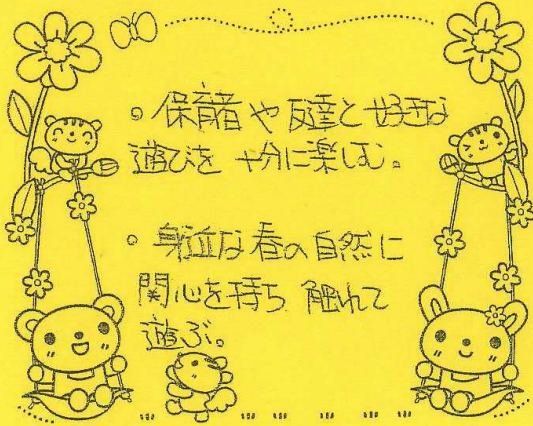 。保育者や友達と好きな
遊びを 十分に楽しむ。
。身近な春の自然に
関心を持ち 触れて
遊ぶ。